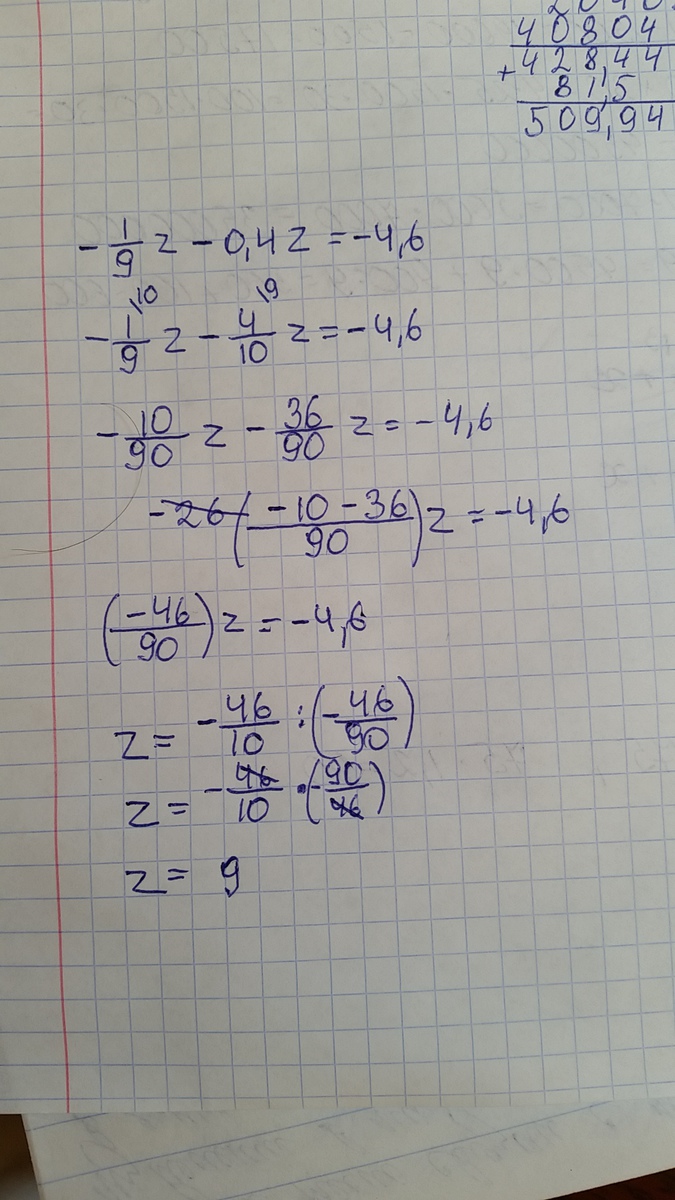 40804
+ 428,44
81,5
509,94
-1/9 z - 0,4z = -4,6
-1\10/9 z - 4\9/10 z = -4,6
-10/90 z - 36/90 z = -4,6
-26 (-10-36/90) z = -4,6
(-46/90) z = -4,6
z = -46/10 : (-46/90)
z = -46/10 · (-90/46)
z = 9